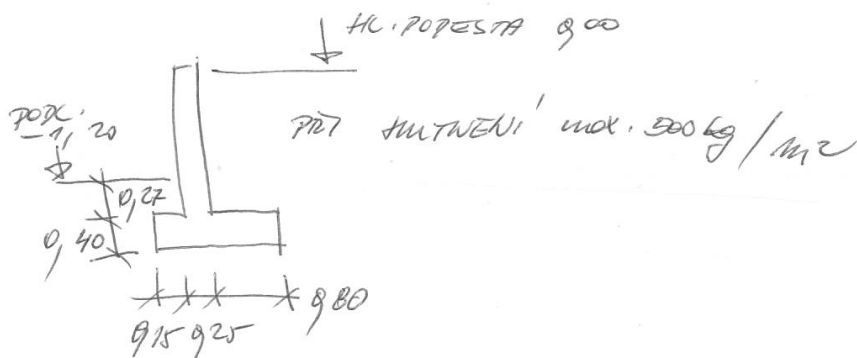 HL. PODESTA 0,00
PODL.
-1,20
PŘI HUTNĚNÍ max. 500 kg/m2
0,27
0,40
0,15 0,25 0,80